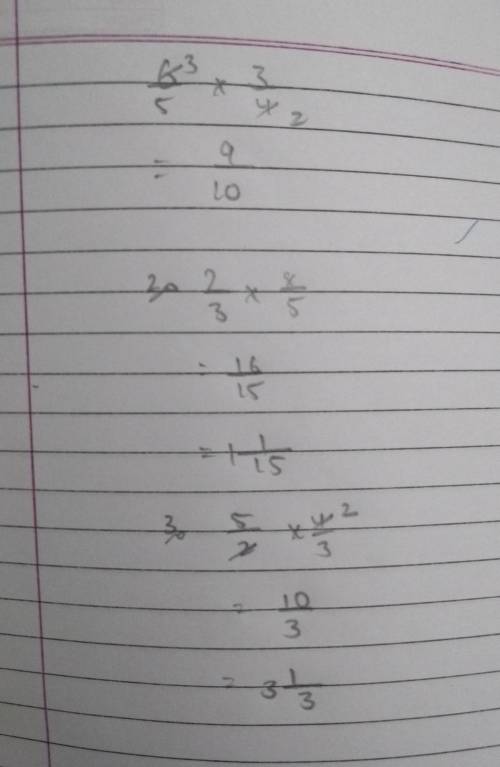 6̶³/5 × 3/4̶₂
= 9/10
2. 2/3 × 8/5
= 16/15
= 1 1/15
3. 5/2̶ × 4̶²/3
= 10/3
= 3 1/3